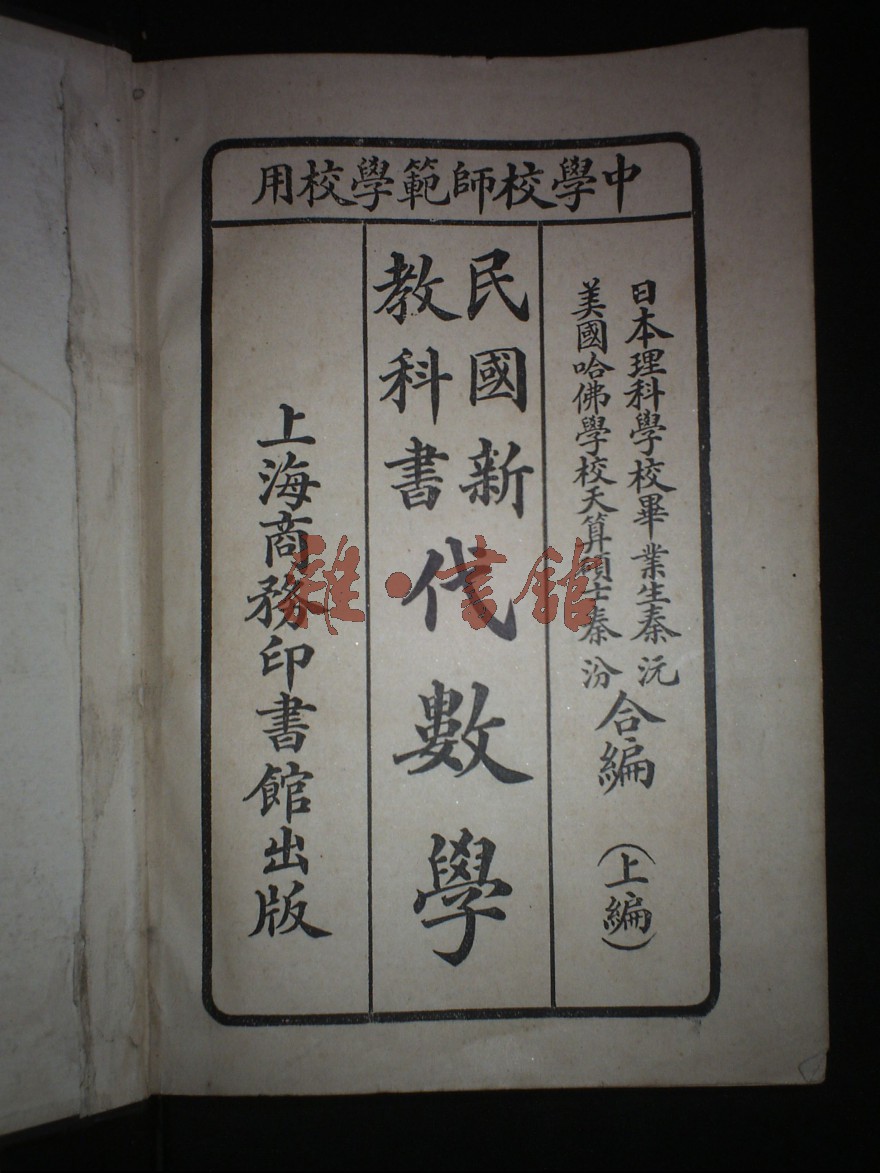 中學校師範學校用
日本理科學校畢業生秦沅
美國哈佛學校天算碩士秦汾
合編
（上編）
民國新
教科書
代數學
上海商務印書館出版
雜·書館